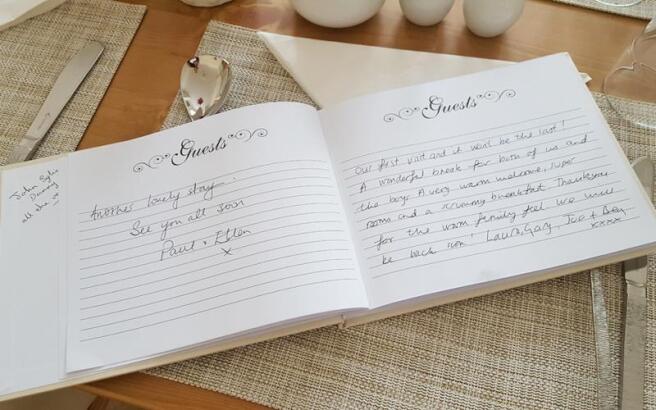 John
all the
Guests
Another lovely stay.
See you all soon
Paul & Ellen
x
Guests
Our first visit and it won't be the last!
A wonderful break for both of us and
the boys. A very warm welcome, super
rooms and a scrummy breakfast. Thankyou
for the warm family feel we will
be back soon! Laura, Gary, Joe + Ben
xxxx